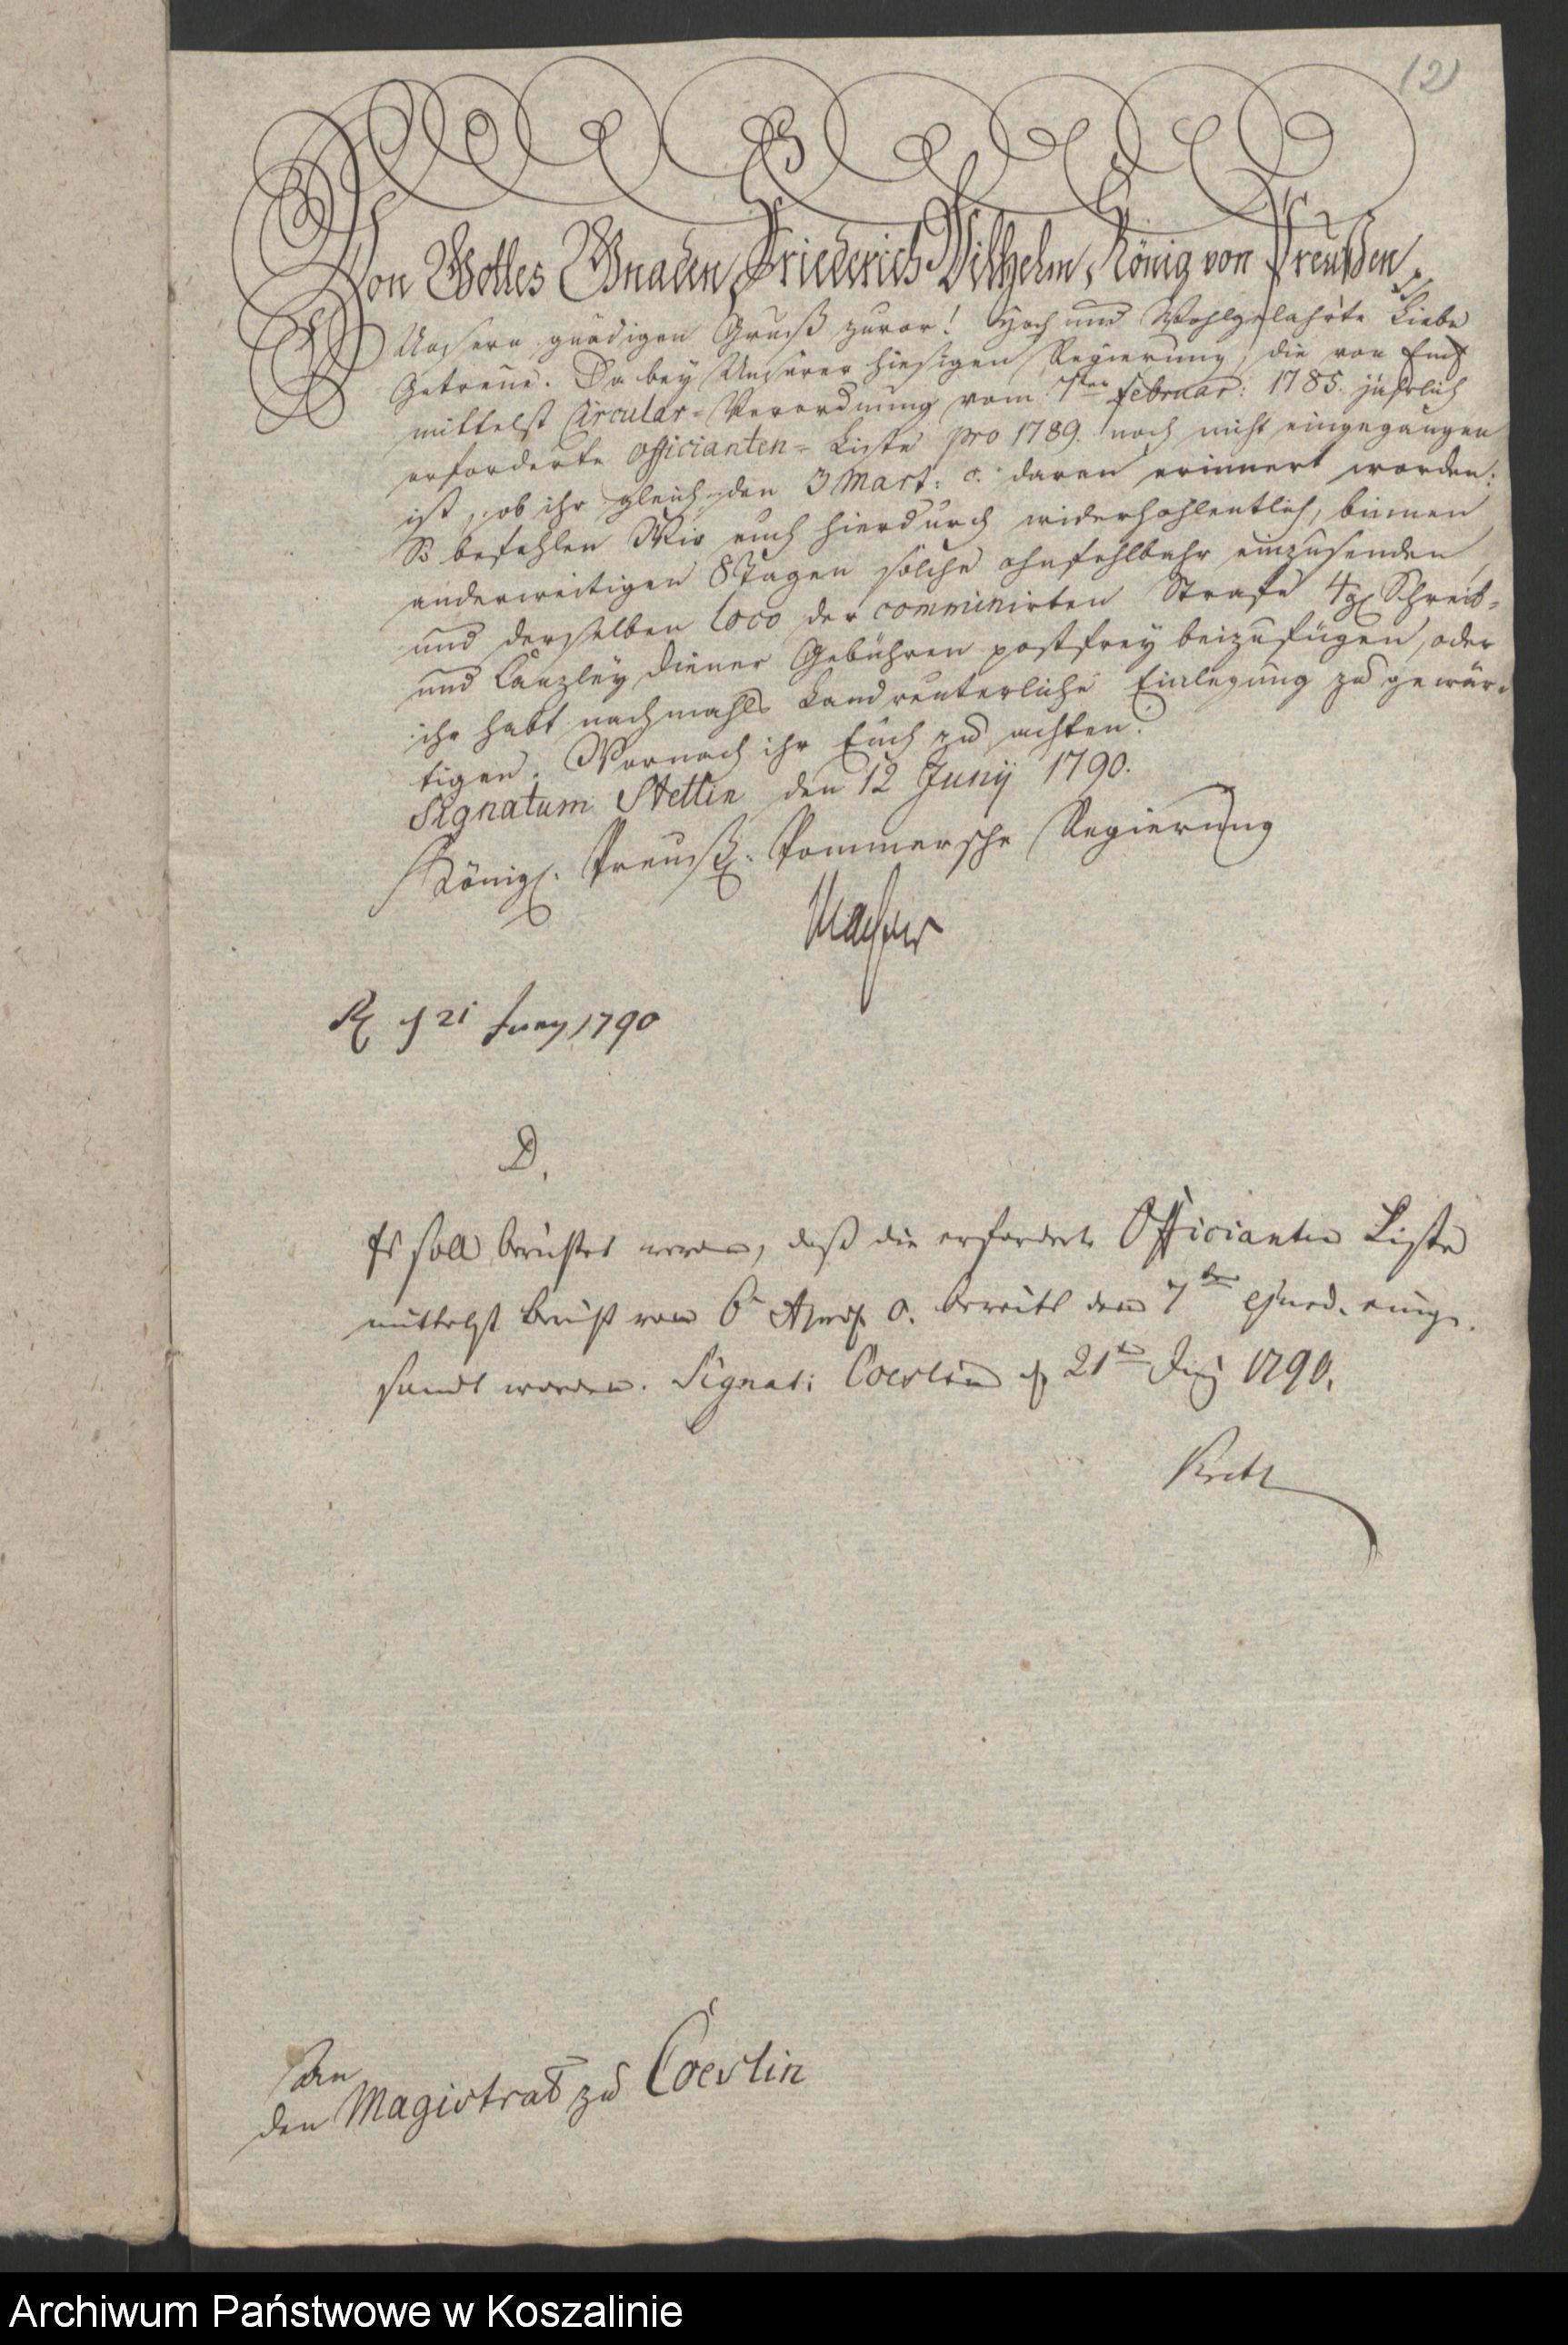 12
Von Gottes Gnaden, Friederich Wilhelm, König von Preußen,
Unsern gnädigen Gruß zuvor! Hoch und Wohlgelahrte Liebe
Getreue. Da bey Unserer hiesigen Regierung, die von Euch
mittelst Circular-Verordnung vom 7ten Februar: 1785. jährlich
erforderte Officianten-Liste pro 1789. noch nicht eingegangen
ist, ob ihr gleich den 3 Mart: c. daran erinnert worden:
So befehlen Wir euch hierdurch widerhohlentlich, binnen
anderweitigen 8 Tagen solche ohnfehlbahr einzusenden,
und derselben loco der comminirten Strafe 4 g Schreib-
und Canzley diener Gebühren postfrey beizufügen, oder
ihr habt nachmahls Landreuterliche Einlegung zu gewär-
tigen. Wornach ihr Euch zu achten.
Signatum Stettin den 12 Junij 1790.
Königl. Preuß. Pommersche Regierung
21 Juny 1790
D.
Es soll berichtet werden, daß die erforderte Officianten Liste
mittelst Bericht vom 6 c. bereits den 7ten ejusd. einge-
sandt worden. Signat: Coeslin d 21ten Junij 1790.
An
den Magistrat zu Coeslin
Archiwum Państwowe w Koszalinie